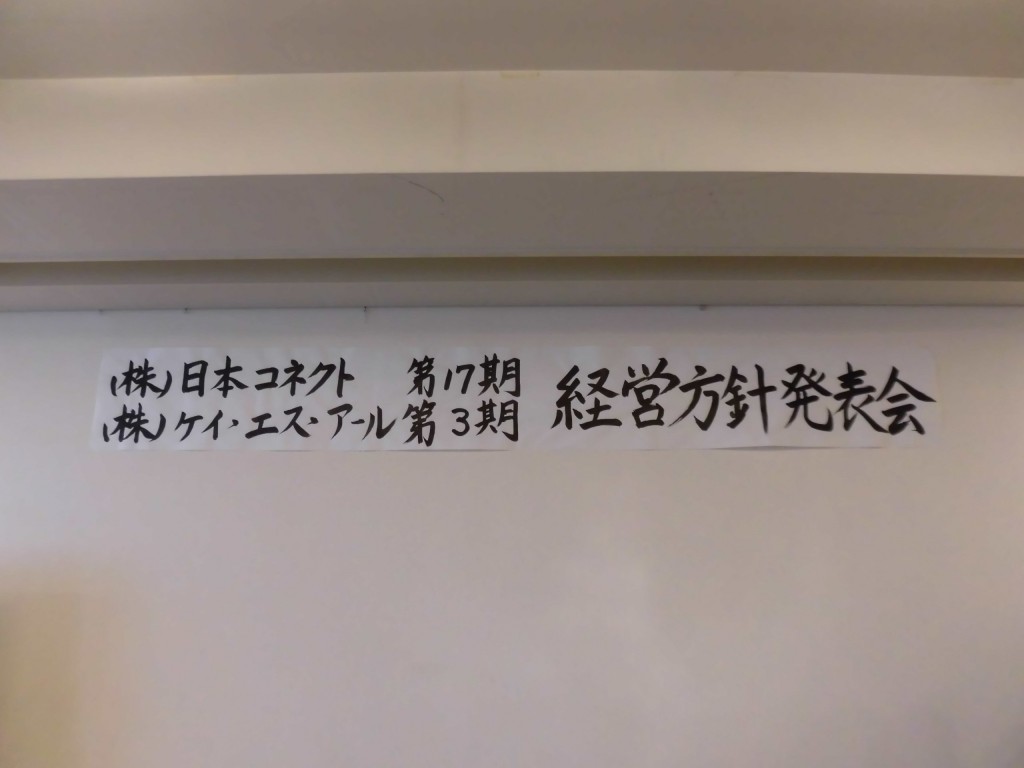 (株)日本コネクト 第17期
(株)ケイ・エス・アール 第3期
経営方針発表会